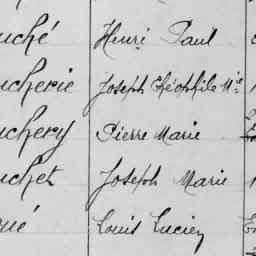 uché Henri Paul
ucherie Joseph Théophile Mie
uchery Pierre Marie
uchet Joseph Marie
ué Louis Lucien